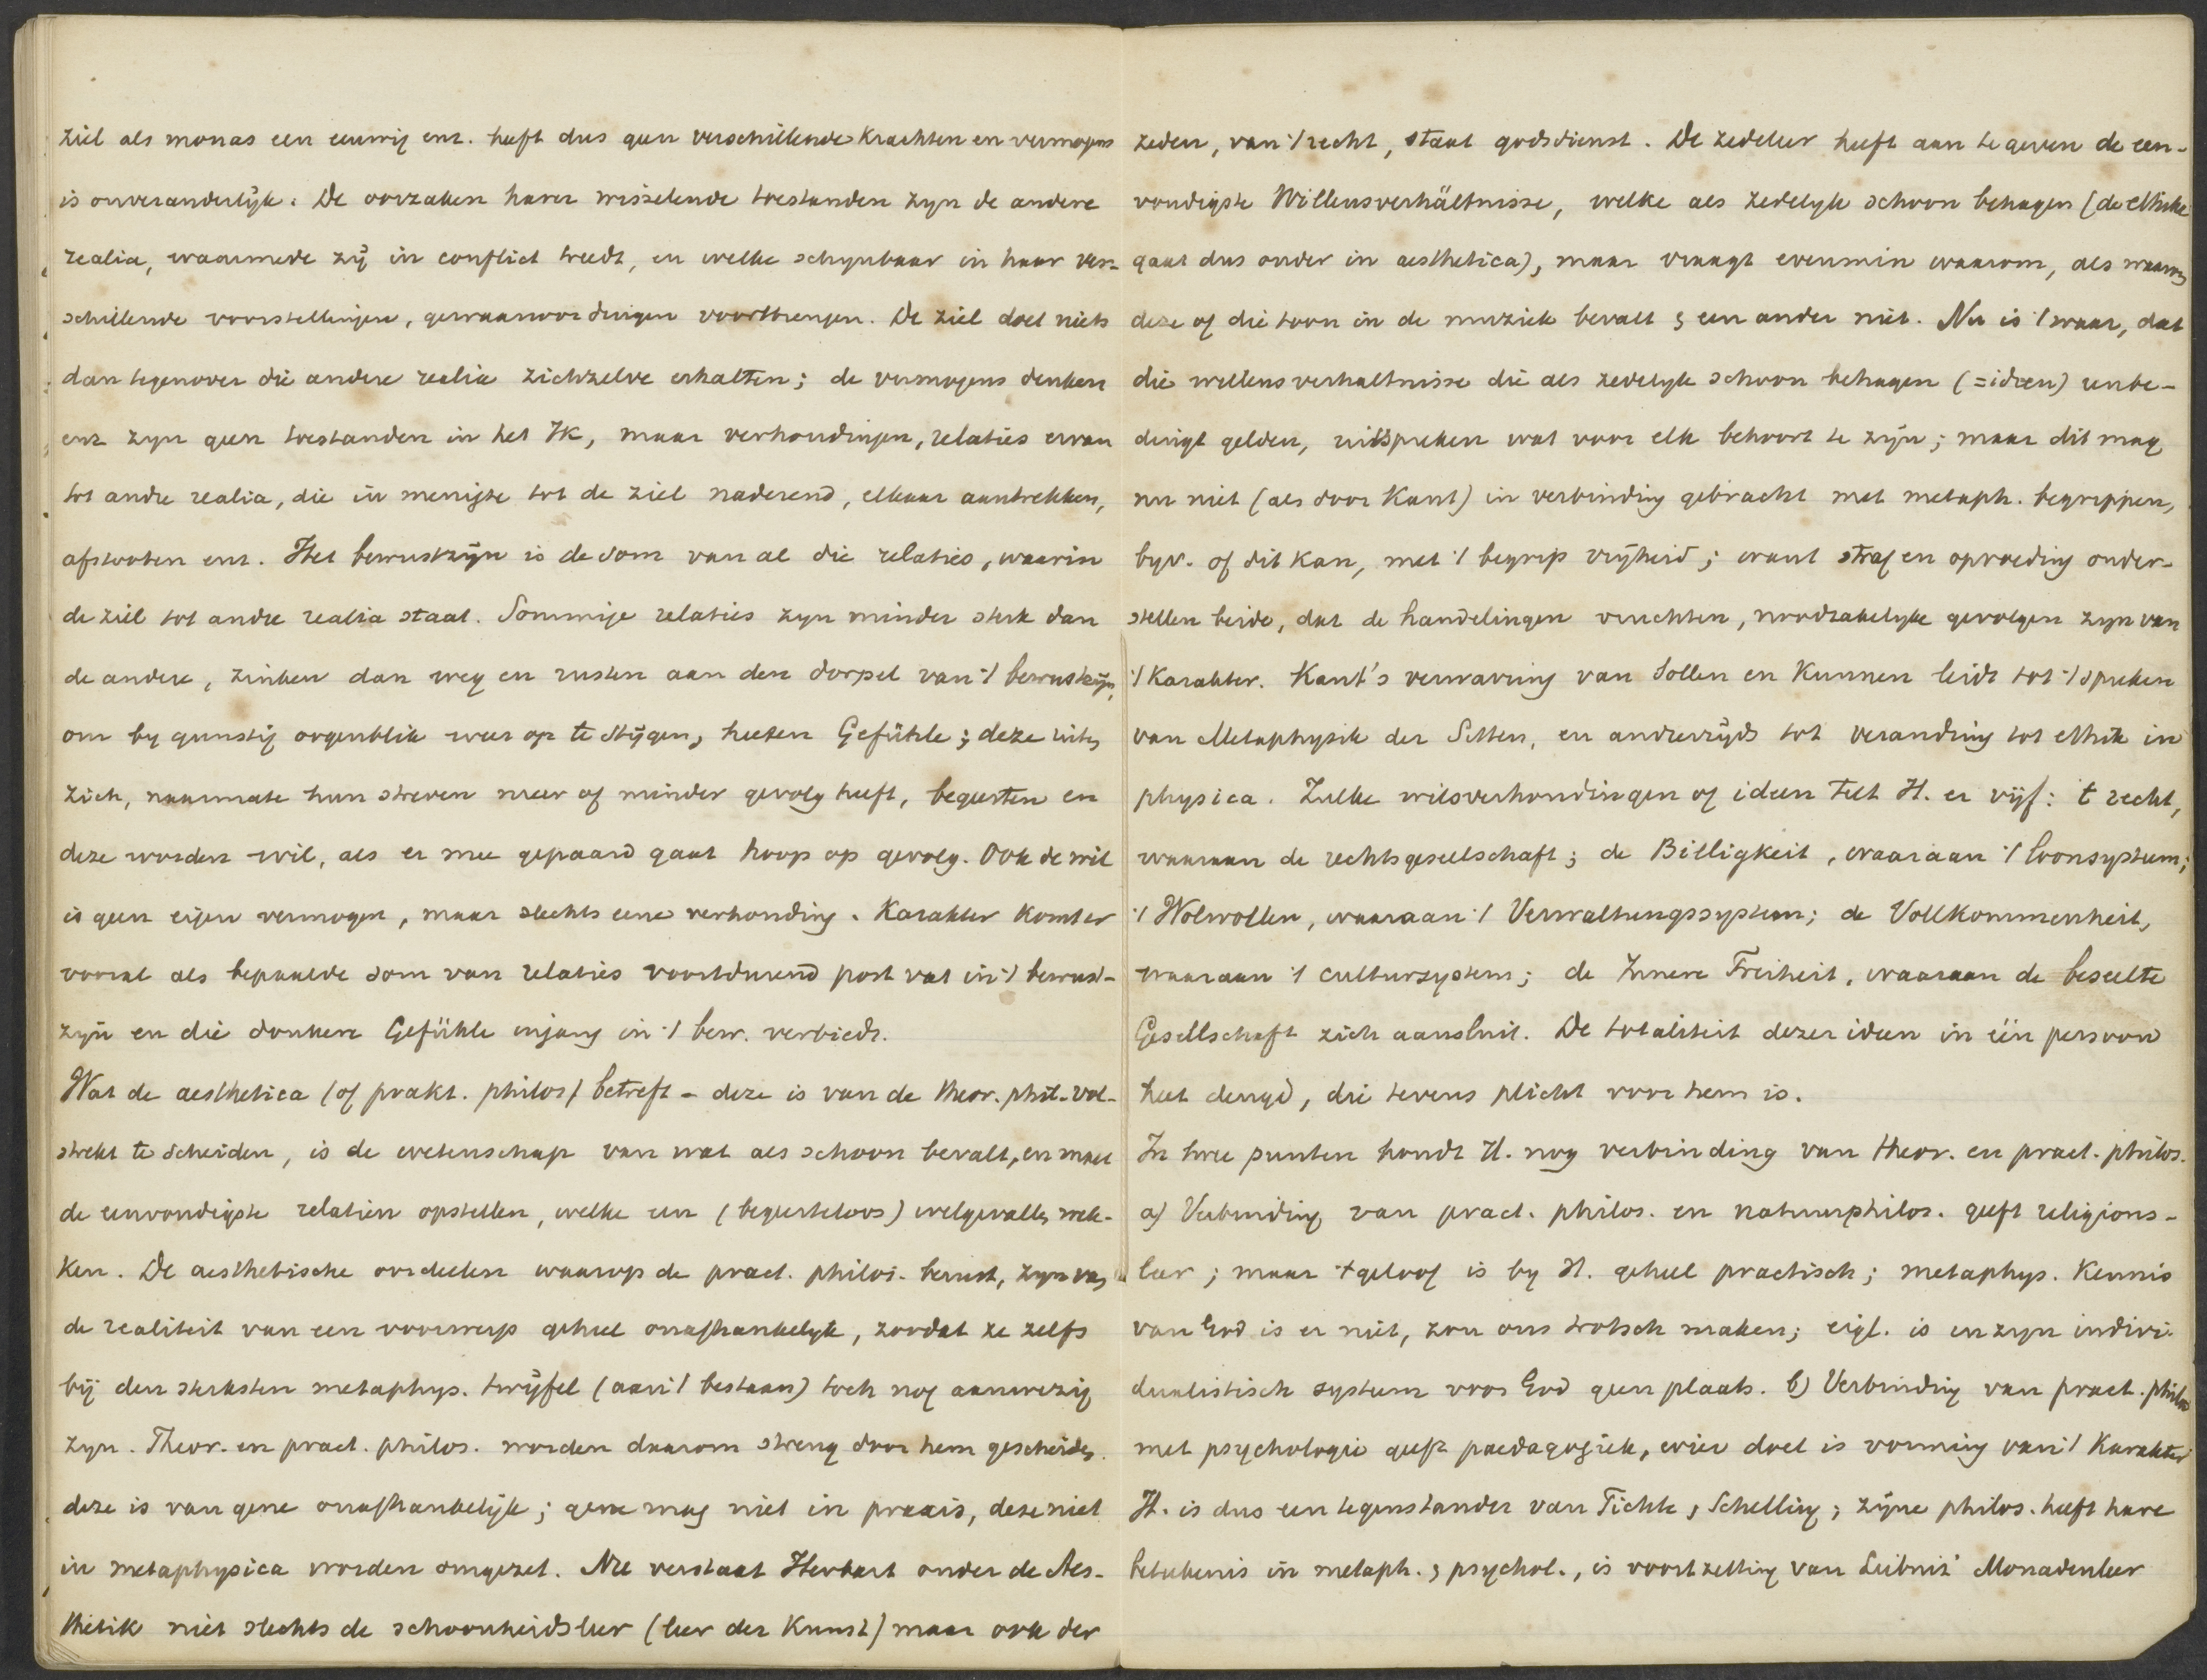 ziel als monas een eeuwig enz. heeft dus geen verschillende krachten en vermogens
is onveranderlijk. De oorzaken harer wisselende toestanden zyn de andere
realia, waarmede zij in conflict treedt, en welke schynbaar in haar ver-
schillende voorstellingen, gewaarwordingen voortbrengen. De ziel doet niets
dan tegenover die andere realia zichzelve erhalten; de vermogens denken
enz zyn geen toestanden in het Ik, maar verhoudingen, relaties ervan
tot andre realia, die in menigte tot de ziel naderend, elkaar aantrekken,
afstooten enz. Het bewustzijn is de som van al die relaties, waarin
de ziel tot andre realia staat. Sommige relaties zyn minder sterk dan
de andere, zinken dan weg en rusten aan den dorpel van 't bewustzijn,
om by gunstig oogenblik weer op te stijgen, heeten Gefühle; deze uiten
zich, naarmate hun streven meer of minder gevolg heeft, begeerten en
deze worden wil, als er mee gepaard gaat hoop op gevolg. Ook de wil
is geen eigen vermogen, maar slechts eene verhouding. Karakter komt er
vooral als bepaalde som van relaties voortdurend post vat in 't bewust-
zijn en die donkere Gefühle ingang in 't bew. verbiedt.
Wat de aesthetica (of prakt. philos) betreft - deze is van de theor. phil. vol-
strekt te scheiden, is de wetenschap van wat als schoon bevalt, en moet
de eenvoudigste relatiën opstellen, welke een (begeerteloos) welgevallen wek-
ken. De aesthetische oordeelen waarop de pract. philos. berust, zyn van
de realiteit van een voorwerp geheel onafhankelyk, zoodat ze zelfs
bij den sterksten metaphys. twijfel (aan 't bestaan) toch nog aanwezig
zyn. Theor. en pract. philos. worden daarom streng door hem gescheiden.
deze is van gene onafhankelijk; gene mag niet in praxis, deze niet
in metaphysica worden omgezet. Nu verstaat Herbart onder de Aes-
thetik niet slechts de schoonheidsleer (leer der Kunst) maar ook der
zeden, van 't recht, staat godsdienst. De zedeleer heeft aan te geven de een-
voudigste Willensverhältnisse, welke als zedelyk schoon behagen (de ethiek
gaat dus onder in aesthetica), maar vraagt evenmin waarom, als waarom
deze of die toon in de muziek bevalt & een ander niet. Nu is 't waar, dat
die willensverhaltnisse die als zedelyk schoon behagen (= ideen) unbe-
dingt gelden, uitspreken wat voor elk behoort te zijn; maar dit mag
nu niet (als door Kant) in verbinding gebracht met metaph. begrippen,
byv. of dit kan, met 't begrip vrijheid; want straf en opvoeding onder-
stellen beide, dat de handelingen vruchten, noodzakelyke gevolgen zyn van
't Karakter. Kant's verwarring van Sollen en Kunnen leidt tot 't spreken
van Metaphysik der Sitten, en anderzijds tot verandring tot ethik in
physica. Zulke wilsverhoudingen of ideen telt H. er vijf: 't recht,
waaraan de rechtsgesellschaft; de Billigkeit, waaraan 't loonsysteem;
't Wolwollen, waaraan 't Verwaltungssystem; de Vollkommenheit,
waaraan 't cultursystem; de Innere Freiheit, waaraan de beseelte
Gesellschaft zich aansluit. De totaliteit dezer ideen in één persoon
heet deugd, die tevens plicht voor hem is.
In twee punten houdt H. nog verbinding van theor. en pract. philos.
a) Verbinding van pract. philos. en natuurphilos. geeft religions-
leer; maar 't geloof is by H. geheel practisch; metaphys. kennis
van God is er niet, zou ons trotsch maken; eigl. is in zyn indivi-
dualistisch systeem voor God geen plaats. b) Verbinding van pract. philos
met psychologie geeft paedagogiek, wier doel is vorming van 't Karakter
H. is dus een tegenstander van Fichte, Schelling; zijne philos. heeft hare
beteekenis in metaph. & psychol., is voortzetting van Leibniz' Monadenleer